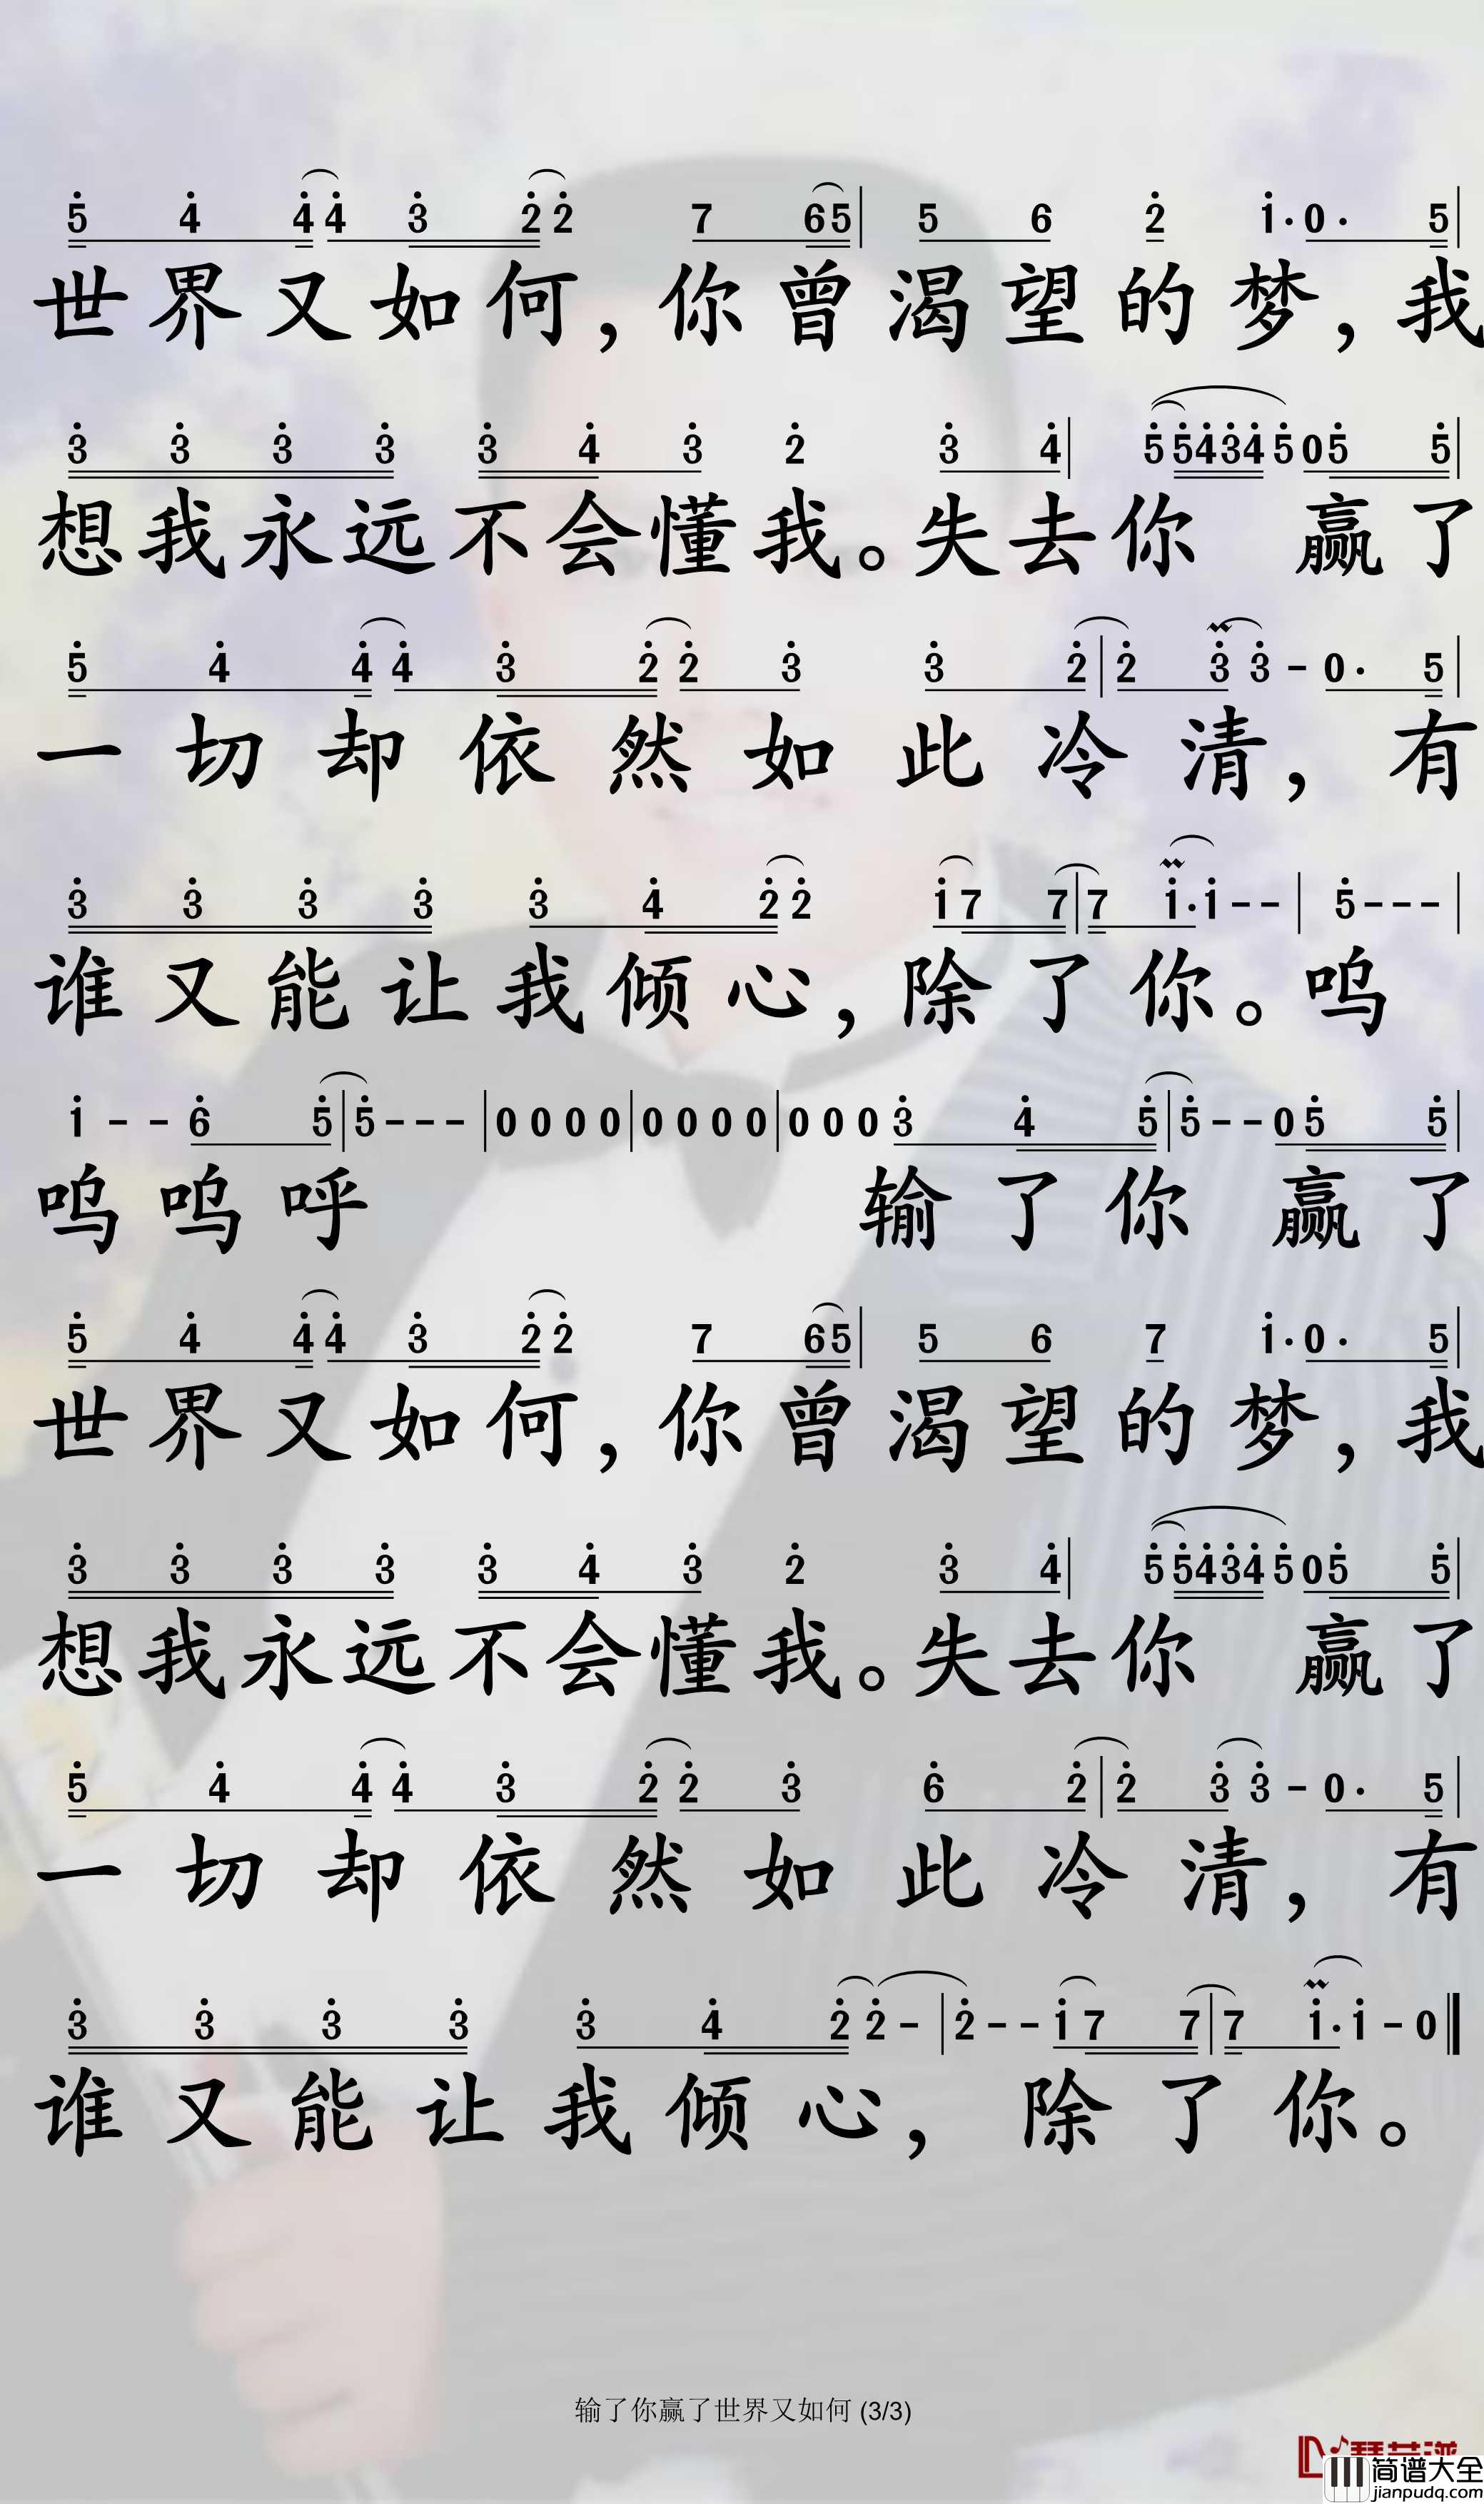 5 4 4 4 3 2 2 7 6 5 | 5 6 2 1 · 0 · 5 |
世界又如何，你曾渴望的梦，我
3 3 3 3 3 4 3 2 3 4 | 5 5 4 3 4 5 0 5 5 |
想我永远不会懂我。失去你 赢了
5 4 4 4 3 2 2 3 3 2 | 2 3 3 - 0 · 5 |
一切却依然如此冷清，有
3 3 3 3 3 4 2 2 1 7 7 | 7 1 · 1 - - | 5 - - - |
谁又能让我倾心，除了你。呜
1 - - 6 5 | 5 - - - | 0 0 0 0 | 0 0 0 0 | 0 0 0 3 4 5 | 5 - - 0 5 5 |
呜呜呼 输了你 赢了
5 4 4 4 3 2 2 7 6 5 | 5 6 7 1 · 0 · 5 |
世界又如何，你曾渴望的梦，我
3 3 3 3 3 4 3 2 3 4 | 5 5 4 3 4 5 0 5 5 |
想我永远不会懂我。失去你 赢了
5 4 4 4 3 2 2 3 6 2 | 2 3 3 - 0 · 5 |
一切却依然如此冷清，有
3 3 3 3 3 4 2 2 - | 2 - - 1 7 7 | 7 1 · 1 - 0 ‖
谁又能让我倾心，除了你。
输了你赢了世界又如何 (3/3)
简谱大全
jianpudq.com